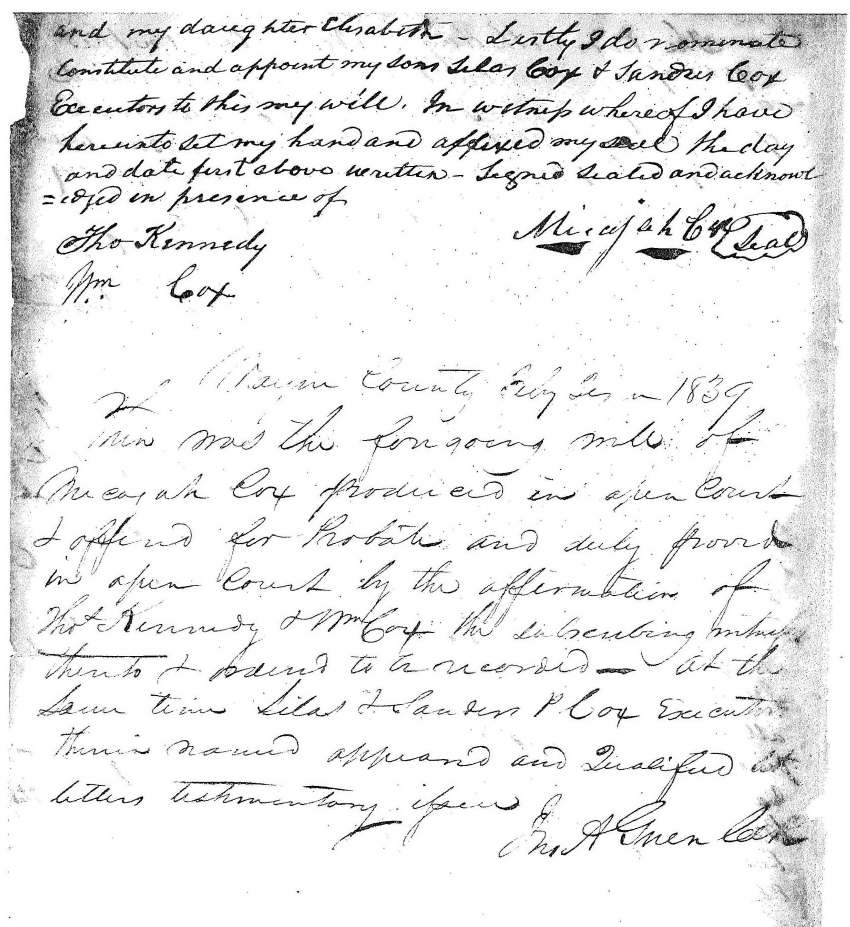 and my daughter Elisabeth – Lastly I do nominate
Constitute and appoint my sons Silas Cox & Sandres Cox
Executors to this my will. In witness whereof I have
hereunto set my hand and affixed my seal the day
and date first above written – Signed Sealed and acknowl
=edged in presence of
Micajah Cox Seal
Tho Kennedy
Wm. Cox
Wayne County Feby Sesn 1839
Then was the foregoing will of
Micajah Cox produced in open Court
& offered for Probate and duly proved
in open Court by the affirmation of
Thos Kennedy & Wm Cox the subscribing witness
thereto & ordered to be recorded – At the
Same time Silas & Sanders P Cox Executors
therein named appeared and Qualified let
letters testamentary issue
Jno A Green